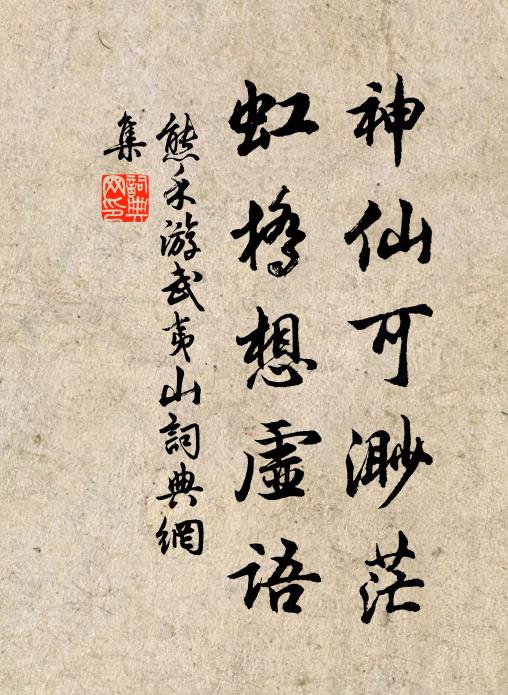 神仙可渺茫
虹橋想虛語
熊禾游武夷山詞典網
集
詞典
网印